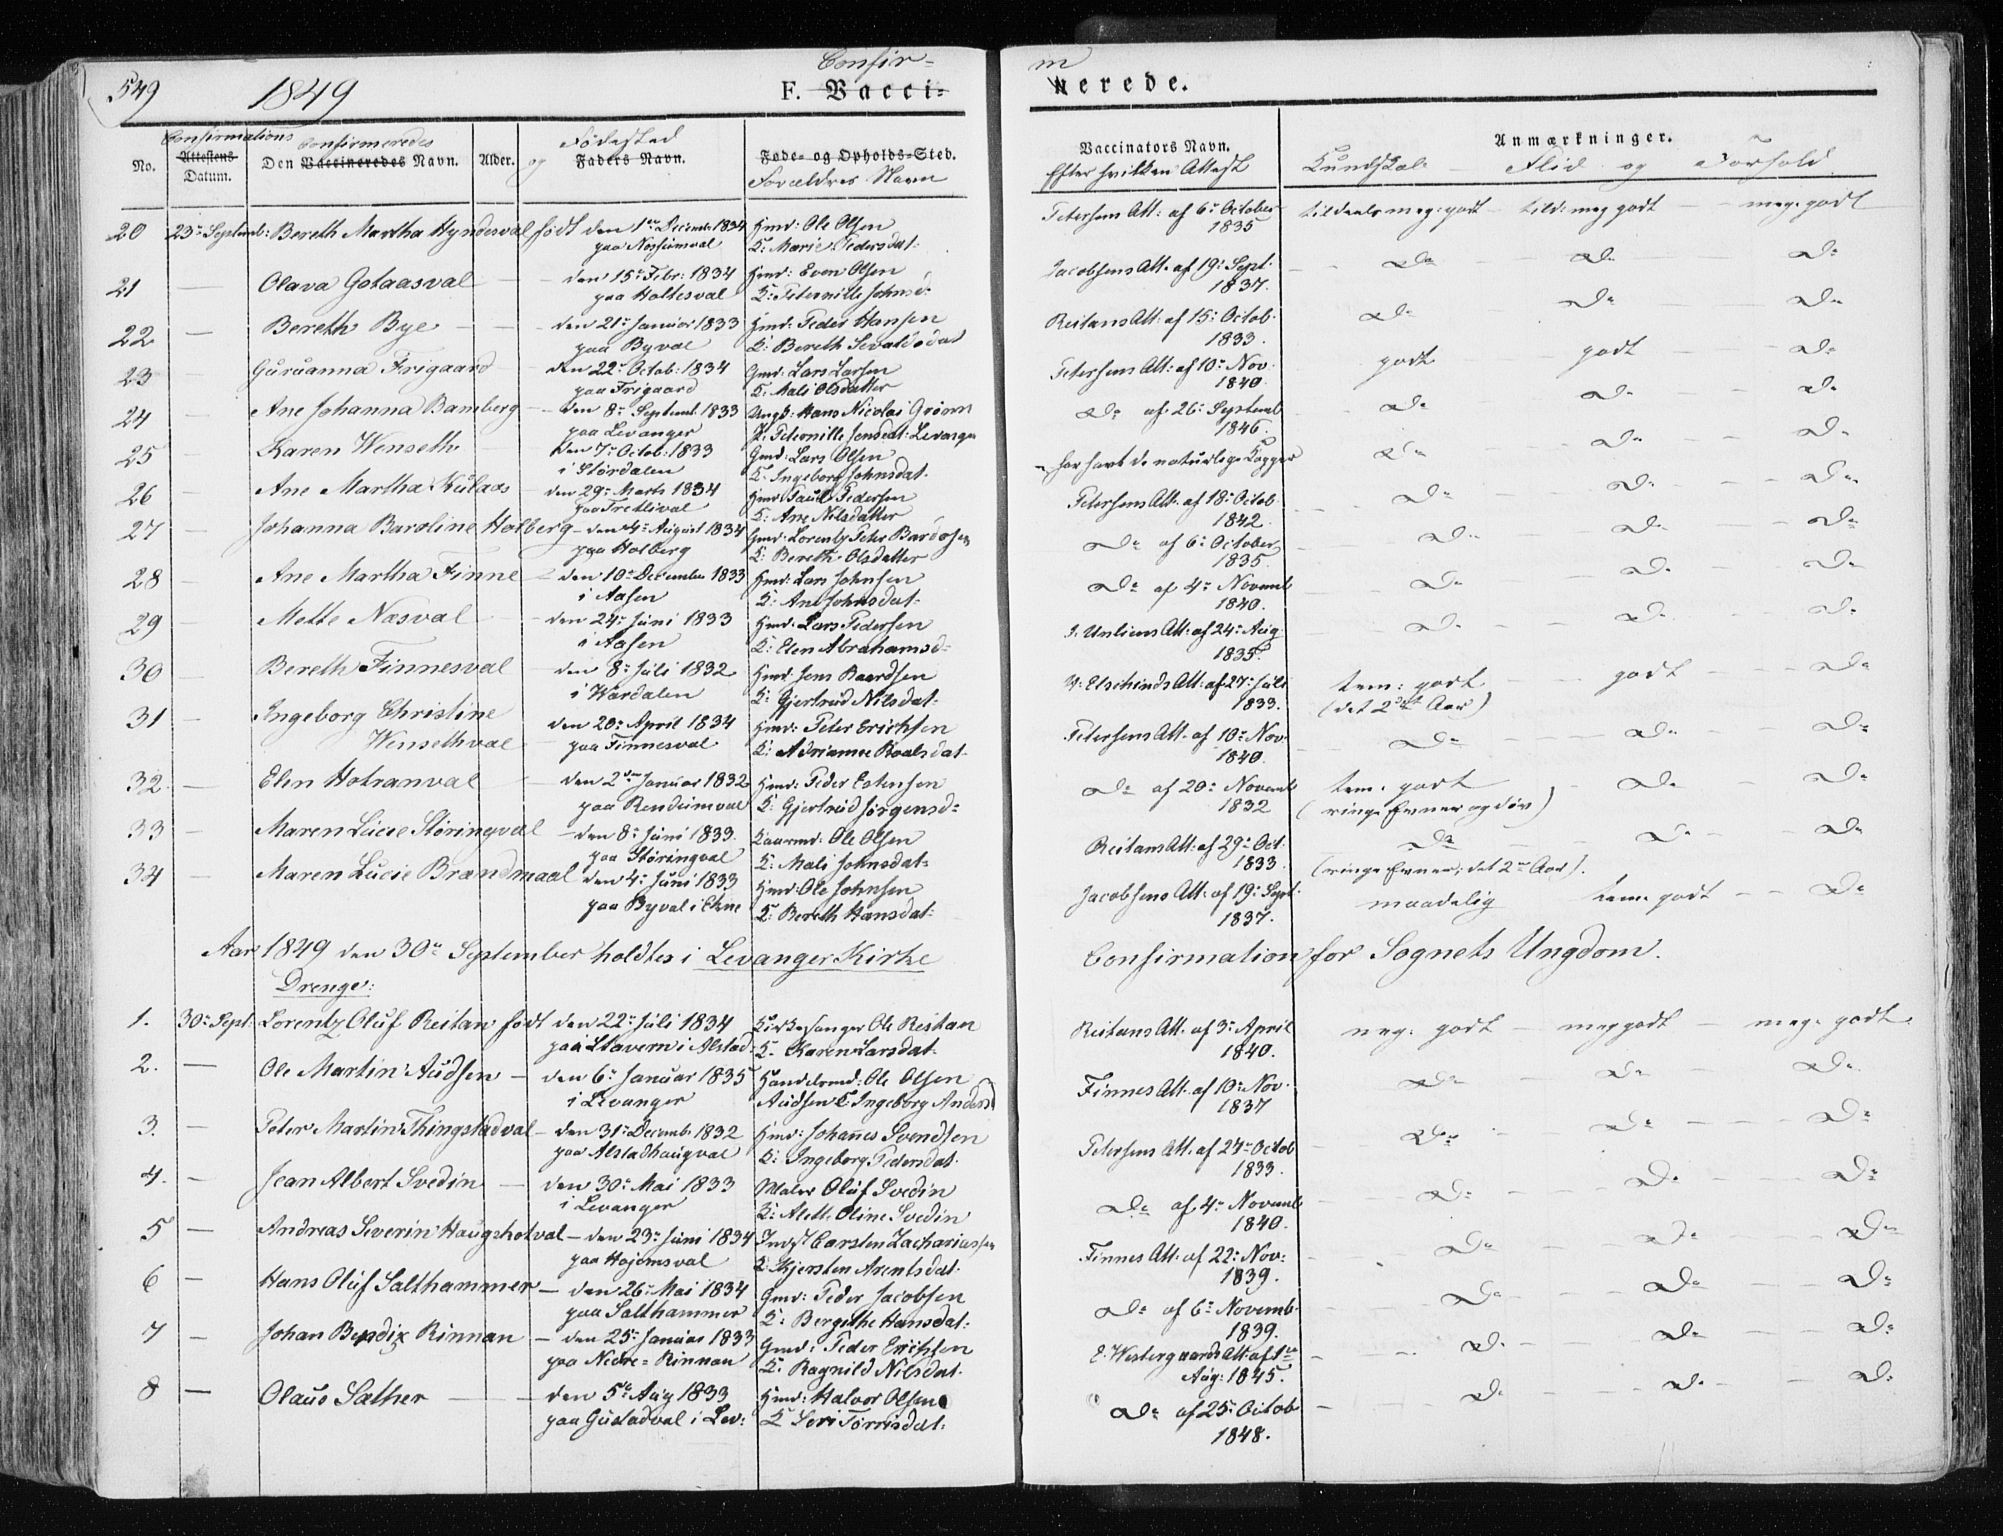 549 1849 F. Vacci- Confir-
m
nerede.
No. Attestens Datum. Confirmations Den Vaccineredes Navn. Confirmeredes Alder. og Faders Navn. Fødested Føde- og Opholds-Sted. Forældres Navn
Vaccinators Navn. Efter hvilken Attest Anmærkninger. Kundskab Flid og Forhold
20 23de Septemb: Bereth Martha Hyndesval født den 1ste Decemb: 1834 Hmd: Ole Olsen Petersens Att: af 6te October tildeels meg: godt tild: meg godt meg: godt
paa Nossumval K: Marie Pedersdat: 1835
21 — Olava Gotaasval den 15de Febr: 1834 Hmd: Even Olsen Jacobsens Att. af 19: Sept. Do Do Do
paa Holtesval K: Peternille Johnsd: 1837.
22 — Bereth Bye den 21de Januar 1833 Hmd: Peder Hansen Reitans Att: af 15: Octob. Do Do Do
paa Byval K: Bereth Sevaldsdat 1833.
23 — Guruanna Frigaard den 22: Octob: 1834 Gmd: Lars Larsen Petersens Att: af 10: Nov. godt godt Do
paa Frigaard K: Mali Olsdatter 1840.
24 — Ane Johanna Bamberg den 8: Septemb: 1833 Ungk: Hans Nicolai Grønn Do af 26: Septemb Do Do Do
paa Levanger P: Peternille Jensdat: Levanger 1846.
25 — Karen Wenseth den 7: Octob: 1833 Gmd: Lars Olsen har havt de naturlige Kopper Do Do Do
i Stordalen K: Ingeborg Johnsdat.
26 — Ane Martha Kulaas den 29: Marts 1834 Hmd Paul Pedersen Petersens Att. af 18: Octob. Do Do Do
paa Fretlival K: Ane Nilsdatter 1842.
27 — Johanna Baroline Holberg den 4: August 1834 Gmd: Lorentz Peter Bardosen Do af 6: October Do Do Do
paa Holberg K: Bereth Olsdatter 1835.
28 — Ane Martha Finne den 10: December 1833 Hmd: Lars Johnsen Do af 4: Novemb Do Do Do
i Aasen K: Ane Johnsdat: 1840.
29 — Mette Næsval den 24: Juni 1833 Hmd: Lars Pedersen Att: af 24: Aug Do Do Do
i Aasen K: Elen Abrahamsd: 1835.
30 — Bereth Finnesval den 8: Juli 1832 Hmd: Jens Baardsen Att: af 27: Juli tem: godt godt Do
i Wærdalen K: Gjertrud Nilsdat: 1833. (det 2det Aar)
31 — Ingeborg Christine den 20: April 1834 Hmd: Peter Erichsen Petersens Att. af 10: Nov. Do Do Do
Wensethval paa Finnesval K: Adrianne Roalsdat. 1840.
32. — Elen Hotranval den 2den Januar 1832 Hmd: Peder Estensen Do af 20: Novemb tem. godt Do Do
paa Rendumval K: Gjertrud Jørgensd: 1832 (ringe Evner og døv)
33 — Maren Lucie Støringval den 8: Juni 1833. Kaarmd: Ole Olsen Reitans Att: af 29: Oct. Do Do Do
paa Støringval K: Mali Johnsdat: 1833. (ringe Evner; det 2det Aar).
34 — Maren Lucie Brandmaal den 4: Juni 1833 Hmd: Ole Johnsen Jacobsens Att: af 19: Sept. maadelig tem. godt Do
paa Byval i Ekne K: Bereth Hansdat: 1837.
Aar 1849 den 30te September holdtes i Levanger Kirke Confirmation for Sognets Ungdom.
Drenge:
1. 30: Sept: Lorentz Oluf Reitan født den 22: Juli 1834 Kirkesanger Ole Reitan Reitans Att. af 3: April meg: godt meg godt meg: godt
paa Stavern i Alstad: K. Karen Larsdat. 1840.
2. — Ole Martin Audsen den 6: Januar 1835 Handelsmd: Ole Olsen Finnes Att. af 10: Nov. Do Do Do
i Levanger Audsen K: Ingeborg Andersd 1837
3. — Peter Martin Thingstadval den 31: Decemb: 1832 Hmd: Johannes Svendsen Petersens Att. af 24: Octob Do Do Do
paa Alstadhaugval K: Ingeborg Pedersdat. 1833.
4. — Jean Albert Svedin den 30: Mai 1833 Maler Oluf Svedin Do af 4: Novemb Do Do Do
i Levanger K: Aleth. Oline Svedin 1840.
5 — Andreas Severin Haugsholval den 23: Juni 1834 Indst Carsten Zachariassen Finnes Att: af 22: Nov: Do Do Do
paa Hojemsval K: Kjersten Arentsdat. 1839.
6 — Hans Oluf Salthammer den 26: Mai 1834 Gmd: Peder Jacobsen Do af 6: Novemb. Do Do Do
paa Salthammer K: Bergethe Hansdat: 1839.
7 — Johan Bendix Rinnan den 25: Januar 1833 Gmd: Peder Erichsen E. Westergaards Att: af 1ste Do Do Do
paa Nedre-Rinnan K: Ragnild Nilsdat. Aug: 1845.
8 — Olaus Sather den 5te Aug 1833 Hmd: Halvor Olsen Do af 25: Octob Do Do Do
paa Gustadval i Lev: K Seri Torrisdat: 1848.